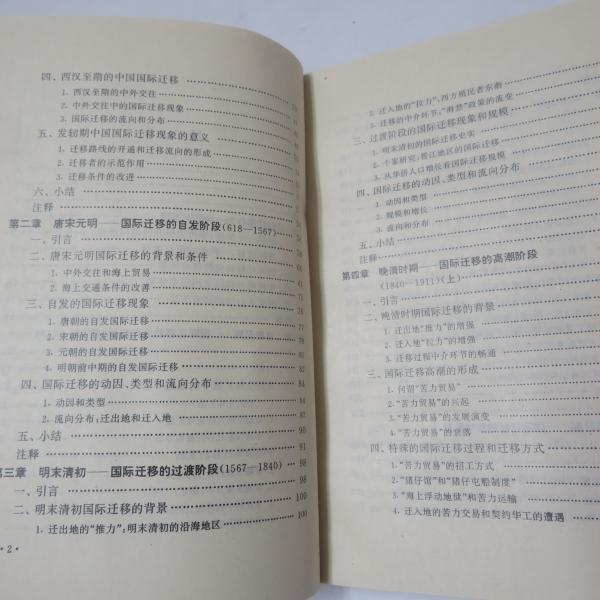 四、西汉至隋的中国国际迁移
1. 西汉至隋的中外交往
2. 中外交往中的国际迁移现象
3. 国际迁移的流向和分布
五、发轫期中国国际迁移现象的意义
1. 迁移路线的开通和迁移流向的形成
2. 迁移者的示范作用
3. 迁移条件的改进
六、小结
注释
第二章 唐宋元明——国际迁移的自发阶段(618—1567)
一、引言
二、唐宋元明国际迁移的背景和条件
1. 中外交往和海上贸易
2. 海上交通条件的改善
三、自发的国际迁移现象
1. 唐朝的自发国际迁移
2. 宋朝的自发国际迁移
3. 元朝的自发国际迁移
4. 明朝前中期的自发国际迁移
四、国际迁移的动因、类型和流向分布 84
1. 动因和类型 84
2. 流向分布:迁出地和迁入地 90
五、小结 91
注释 94
第三章 明末清初——国际迁移的过渡阶段(1567—1840) 98
一、引言 98
二、明末清初国际迁移的背景 100
1. 迁出地的“推力”:明末清初的沿海地区 100
· 2 ·
2. 迁入地的“拉力”:西方殖民者东渐
3. 迁移的中介环节:“海禁”政策的流变
三、过渡阶段的国际迁移现象和规模
1. 明末清初的国际迁移史实
2. 个案研究:晋江地区的国际迁移
3. 从华侨人口增长看国际迁移规模
四、国际迁移的动因、类型和流向分布
1. 动因和类型
2. 规模和增长
3. 流向和分布
五、小结
注释
第四章 晚清时期——国际迁移的高潮阶段
(1840—1911)(上)
一、引言
二、晚清时期国际迁移的背景
1. 迁出地“推力”的增强
2. 迁入地“拉力”的增强
3. 迁移过程中介环节的畅通
三、国际迁移高潮的形成
1. 何谓“苦力贸易”
2. “苦力贸易”的兴起
3. “苦力贸易”的发展演变
4. “苦力贸易”的衰落
四、特殊的国际迁移过程和迁移方式
1. “苦力贸易”的招工方式
2. “猪仔馆”和“猪仔屯船制度”
3. “海上浮动地狱”和苦力运输
4. 迁入地的苦力交易和契约华工的遭遇